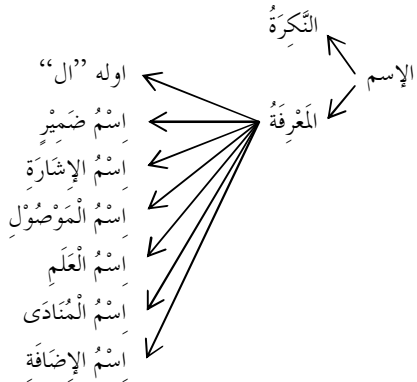 الإسم
النَّكِرَةُ
المَعْرِفَةُ
اوله ”ال“
اِسْمُ ضَمِيْرٍ
اِسْمُ الإِشَارَةِ
اِسْمُ الْمَوْصُوْلِ
اِسْمُ الْعَلَمِ
اِسْمُ الْمُنَادَى
اِسْمُ الإِضَافَةِ